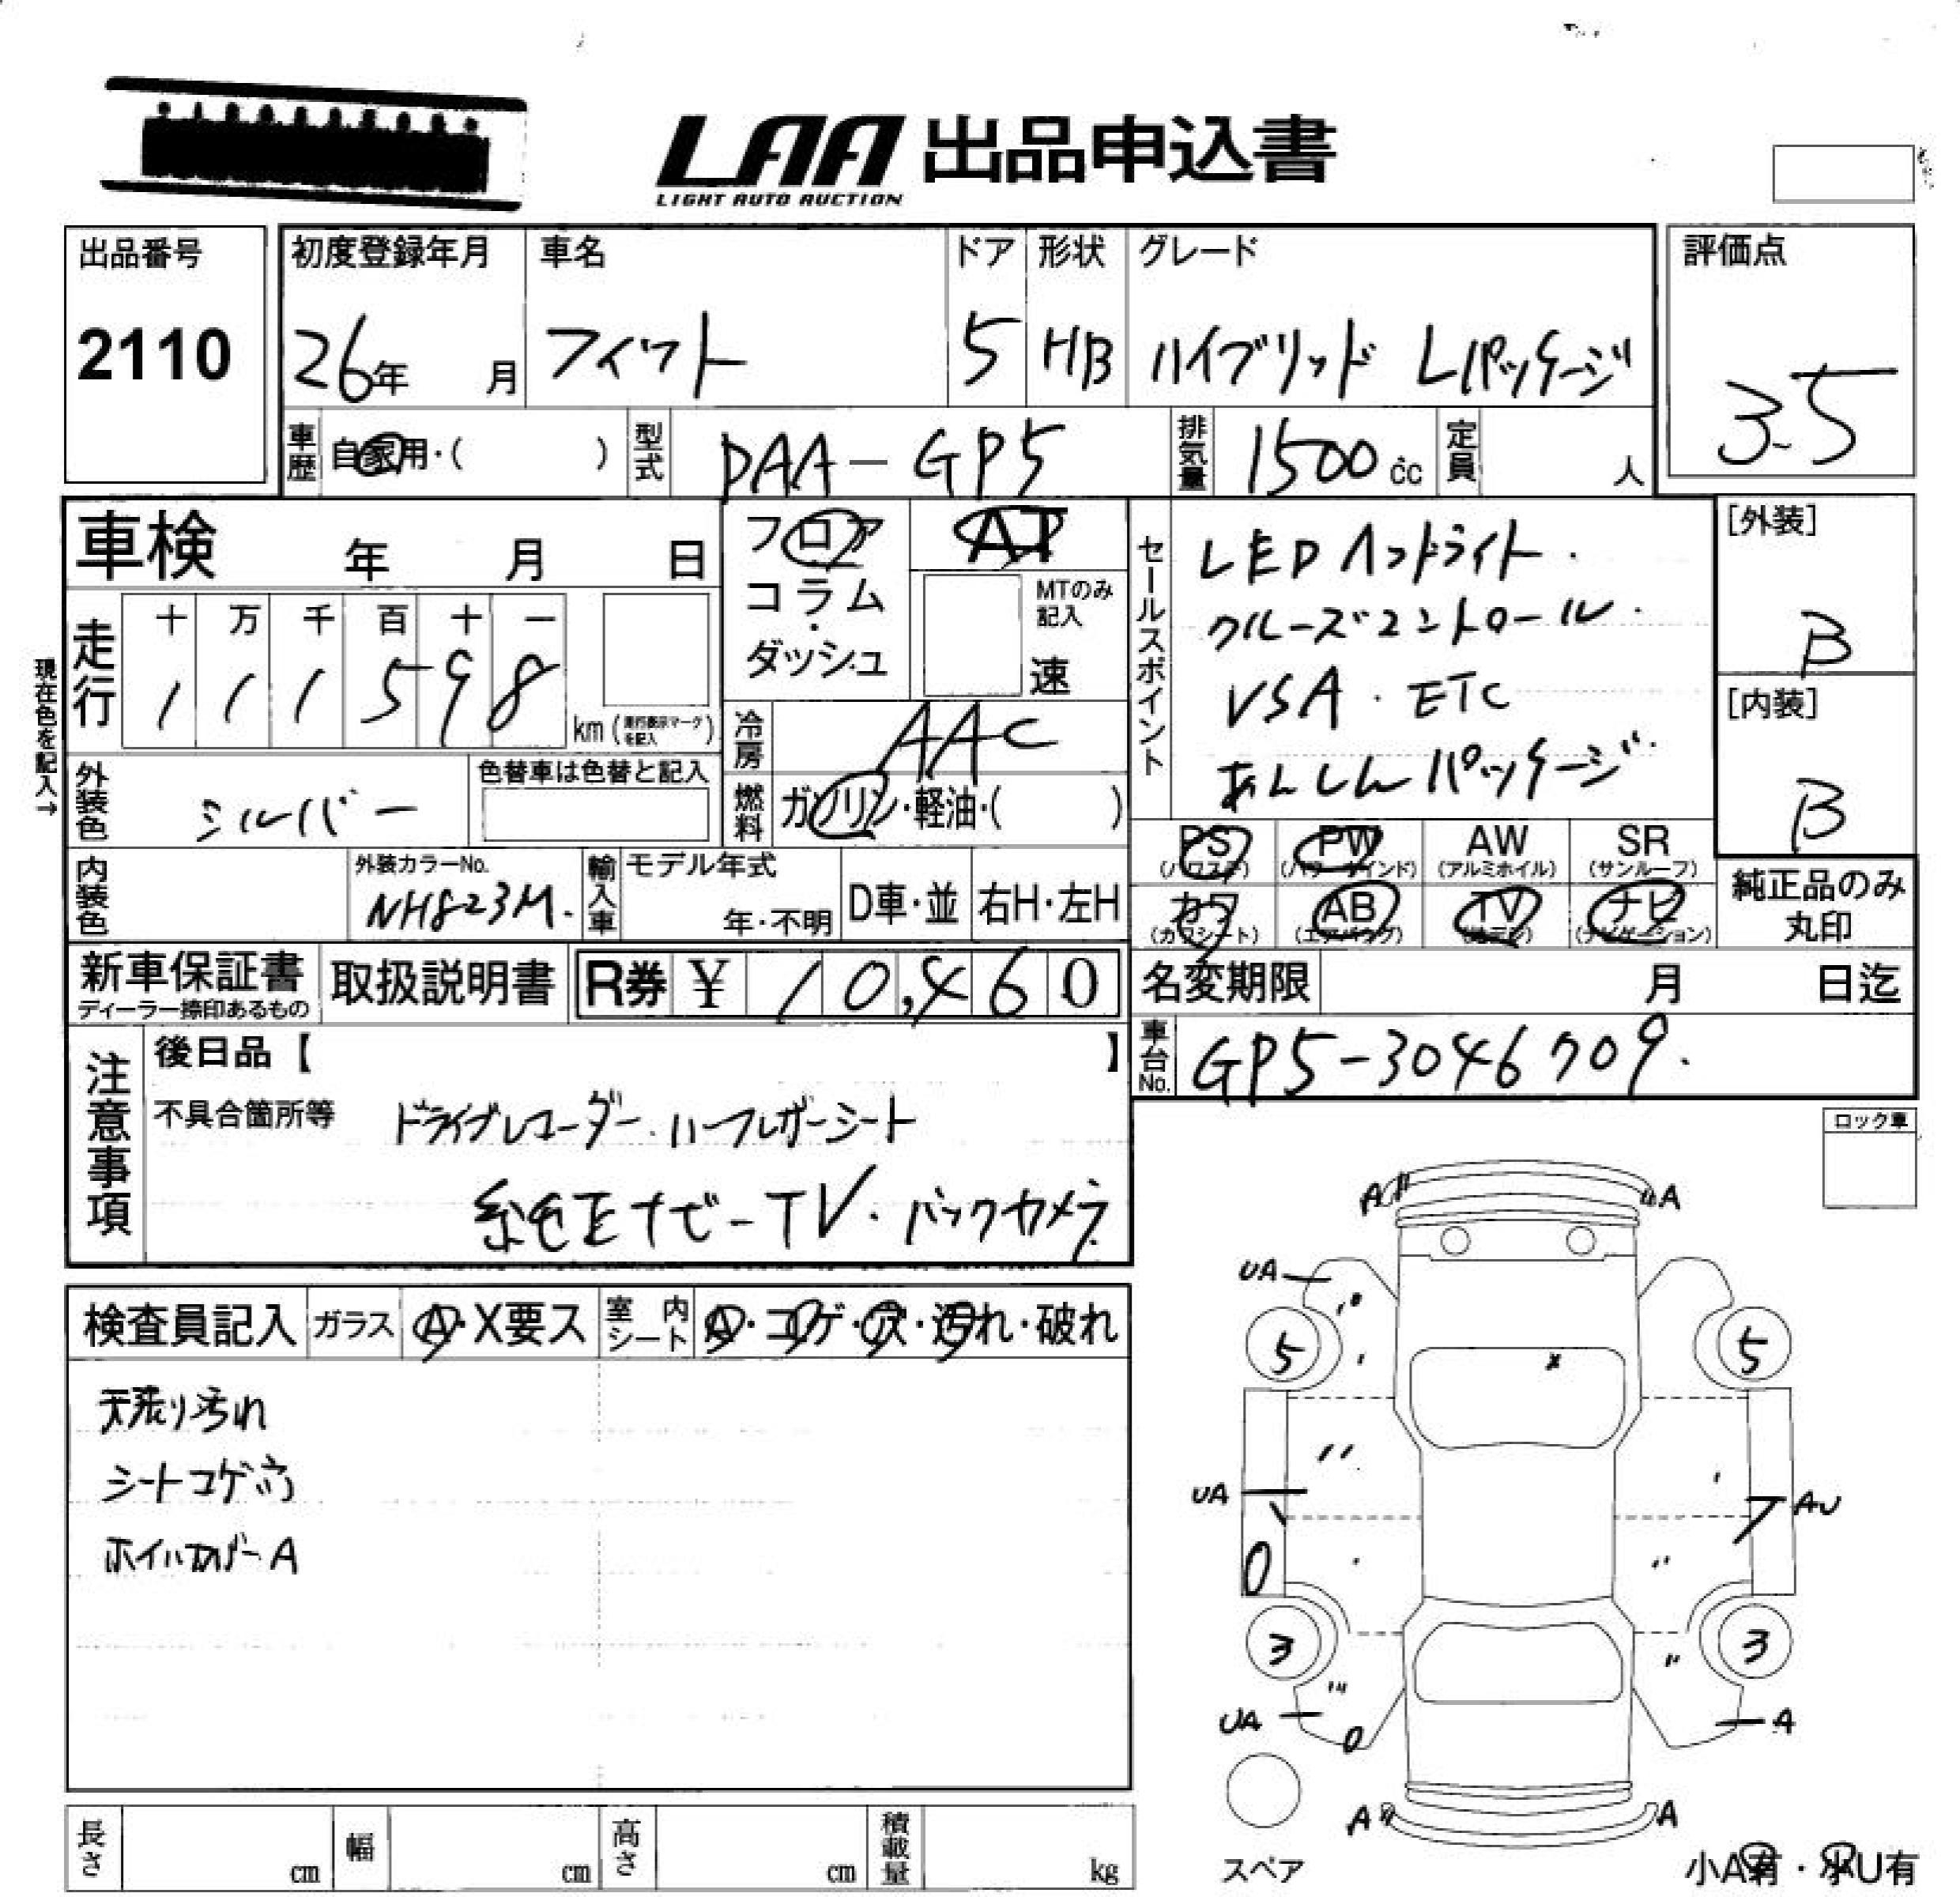 LAA 出品申込書
LIGHT AUTO AUCTION
出品番号
2110
初度登録年月
26年 月
車名
フィット
ドア
5
形状
HB
グレード
ハイブリッド Lパッケージ
評価点
3.5
車歴
自家用・( )
型式
DAA-GP5
排気量
1500cc
定員
人
車検 年 月 日
フロア
コラム・
ダッシュ
AT
MTのみ
記入
速
セールスポイント
LEDヘッドライト・
クルーズコントロール・
VSA・ETC
あんしんパッケージ・
[外装]
B
[内装]
B
現在色を記入→
走行
十 万 千 百 十 一
1 1 1 5 9 8
km (走行表示マークを記入)
冷房
AAC
外装色
シルバー
色替車は色替と記入
燃料
ガソリン・軽油・( )
PS
(パワステ)
PW
(パワーウインド)
AW
(アルミホイル)
SR
(サンルーフ)
内装色
外装カラーNo.
NH823M.
輸入車
モデル年式
年・不明
D車・並
右H・左H
カワ
(カワシート)
AB
(エアバッグ)
TV
(地デジ)
ナビ
(ナビゲーション)
純正品のみ
丸印
新車保証書
ディーラー捺印あるもの
取扱説明書
R券 ¥ 10,460
名変期限 月 日迄
車台No.
GP5-3046709.
注意事項
後日品【 】
不具合箇所等
ドライブレコーダー・ハーフレザーシート
純正ナビーTV・バックカメラ
ロック車
検査員記入
ガラス
A・X要ス
室内シート
A・コゲ・穴・汚れ・破れ
天張り汚れ
シートコゲ穴
ホイルカバーA
A A
UA
5 5
UA AU
3 3
UA A
A A
スペア
小A有・小U有
長さ cm
幅 cm
高さ cm
積載量 kg